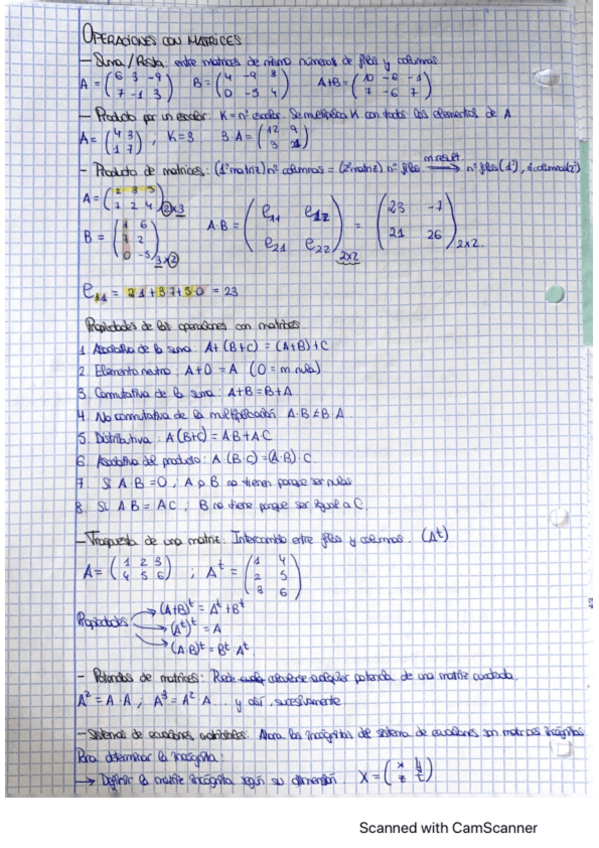 OPERACIONES CON MATRICES
- Suma/Resta: entre matrices de mismo número de filas y columnas
A = (6 3 -9 / 7 -1 3) B = (4 -9 8 / 0 -5 4) A+B = (10 -6 -1 / 7 -6 7)
- Producto por un escalar: K = nº escalar. Se multiplica K con todos los elementos de A.
A = (4 3 / 1 7) ; K=3 3·A = (12 9 / 3 21)
- Producto de matrices: (1ª matriz) nº columnas = (2ª matriz) nº filas m.result. → nº filas (1ª),
A = (2 3 5 / 7 2 4) 2x3
B = (1 6 / 7 2 / 0 -5) 3x2 A·B = (e11 e12 / e21 e22) 2x2 = (23 -7 / 21 26) 2x2.
e11 = 2·1+3·7+5·0 = 23
Propiedades de las operaciones con matrices
1. Asociativa de la suma: A+(B+C) = (A+B)+C
2. Elemento neutro: A+O = A (O = m. nula)
3. Conmutativa de la suma: A+B = B+A
4. No conmutativa de la multiplicación A·B ≠ B·A
5. Distributiva: A(B+C) = AB+AC
6. Asociativa del producto: A·(B·C) = (A·B)·C
7. Si A·B = O, A o B no tienen porque ser nulas
8. Si A·B = AC, B no tiene porque ser igual a C.
- Traspuesta de una matriz: Intercambio entre filas y columnas. (A^t)
A = (1 2 3 / 4 5 6) ; A^t = (1 4 / 2 5 / 3 6)
Propiedades → (A+B)^t = A^t+B^t
→ (A^t)^t = A
→ (A·B)^t = B^t·A^t
- Potencias de matrices: Puede obtenerse cualquier potencia de una matriz cuadrada.
A² = A·A ; A³ = A²·A ... y así, sucesivamente
- Sistemas de ecuaciones matriciales: Ahora las incógnitas del sistema de ecuaciones son matrices incógnitas
Para determinar la incógnita:
→ Definir la matriz incógnita según su dimensión. X = (x y / z t)
Scanned with CamScanner